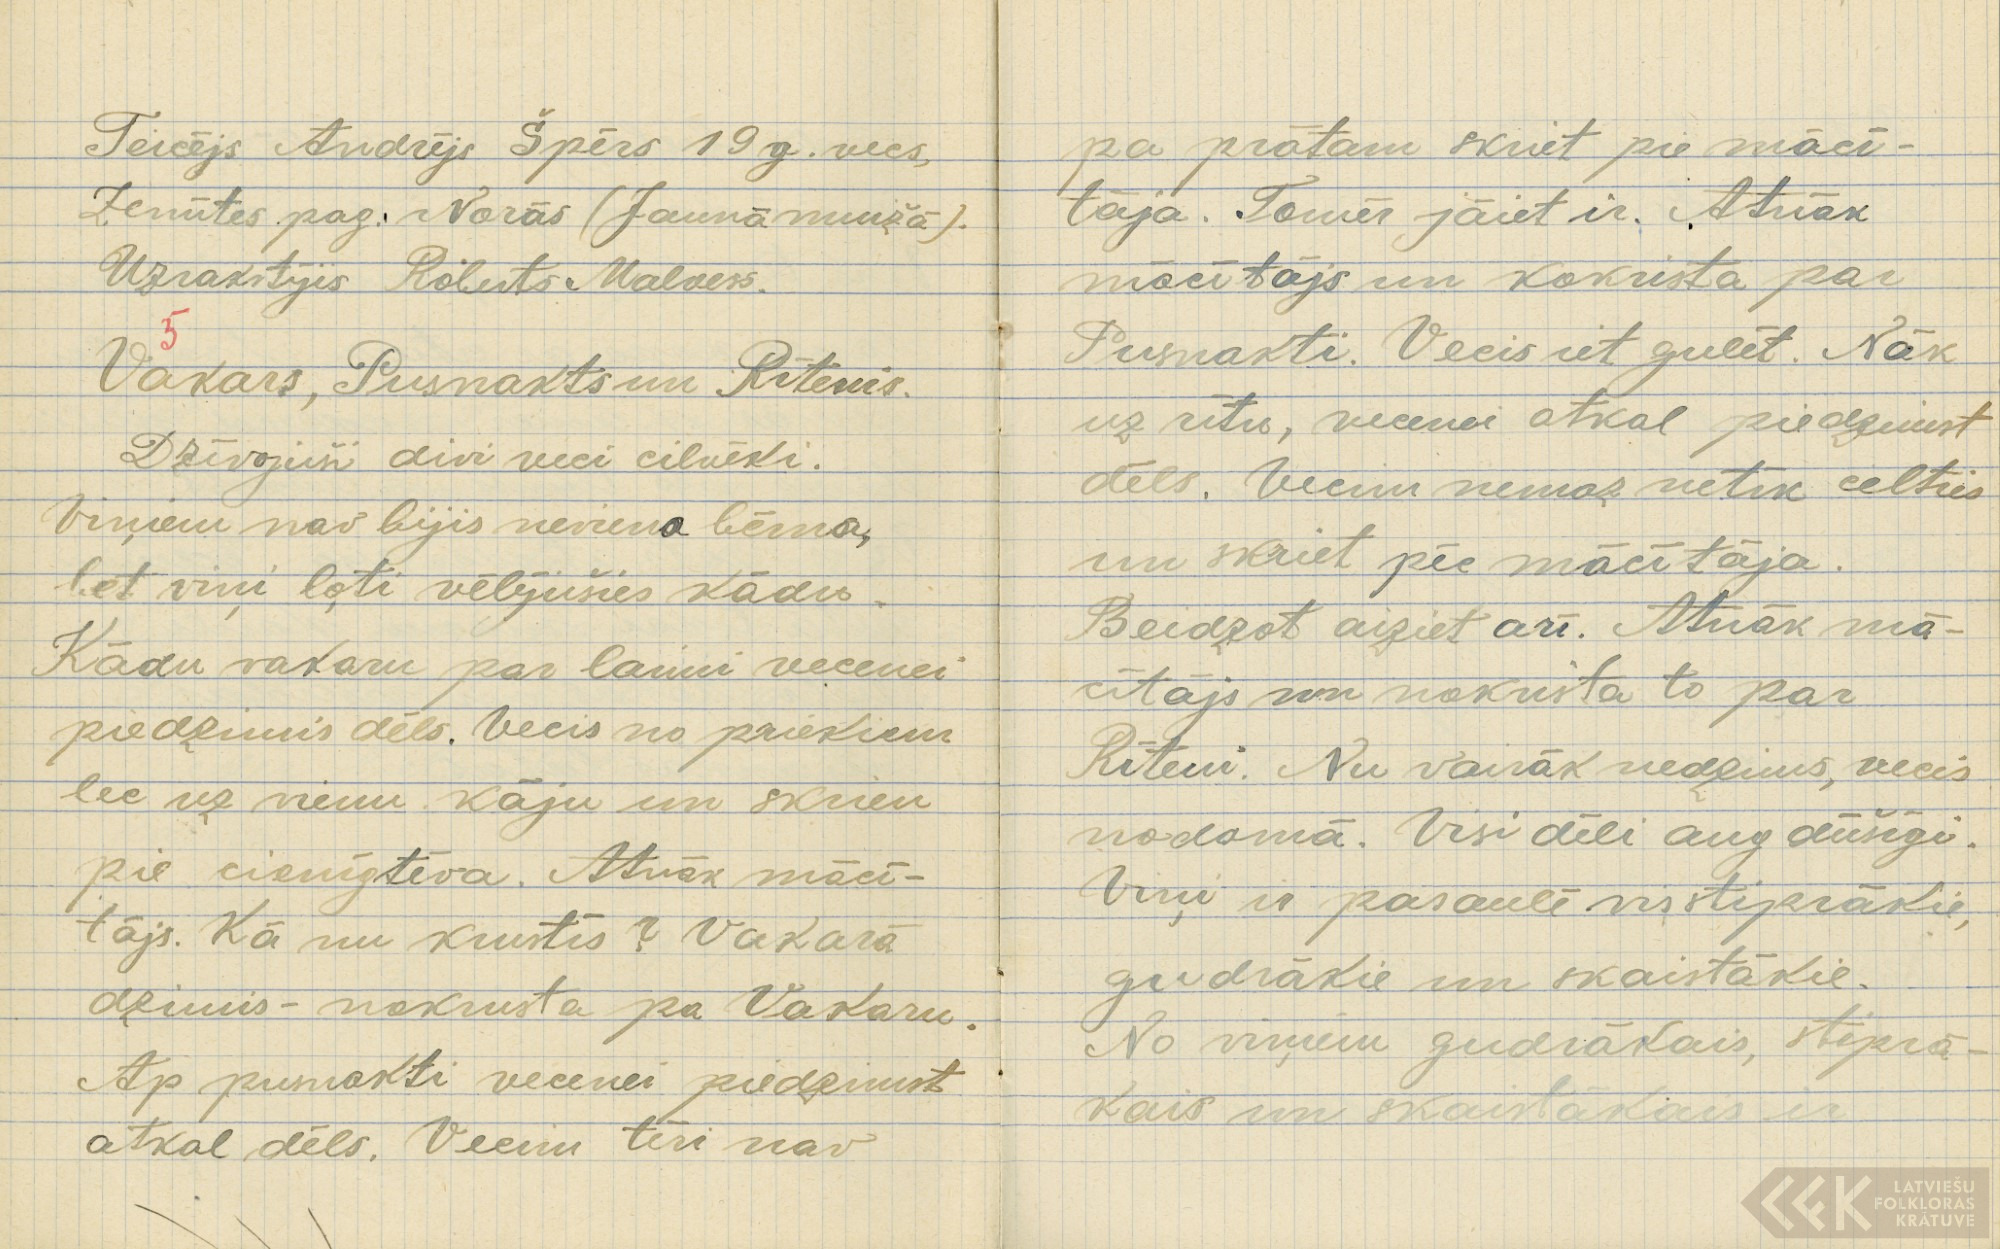 Teicējs Andrējs Špērs 19 g. vecs,
Zemītes pag. Norās (Jaunā muižā).
Uzrakstījis Roberts Malvess.
5
Vakars, Pusnakts un Rītenis.
Dzīvojuši divi veci cilvēki.
Viņiem nav bijis neviena bērna,
bet viņi ļoti vēlējušies kādu.
Kādu vakaru par laimi vecenei
piedzimis dēls. Vecis no priekiem
lec uz vienu kāju un skrien
pie cienīgtēva. Atnāk mācī-
tājs. Kā nu kristīs? Vakarā
dzimis - nokrusta pa Vakaru.
Ap pusnakti vecenei piedzimst
atkal dēls. Vecim tēri nav
pa prātam skriet pie mācī-
tāja. Tomēr jāiet ir. Atnāk
mācītājs un nokrista par
Pusnakti. Vecis iet gulēt. Nāk
uz rītu, vecenei atkal piedzimst
dēls. Vecim nemaz netīk celties
un skriet pēc mācītāja.
Beidzot aiziet arī. Atnāk mā-
cītājs un nokrista to par
Rīteni. Nu vairāk nedzims, vecis
nodomā. Visi dēli aug dūšīgi.
Viņi ir pasaulē visstiprākie,
gudrākie un skaistākie.
No viņiem gudrākais, stiprā-
kais un skaistākais ir
LATVIEŠU
FOLKLORAS
KRĀTUVE